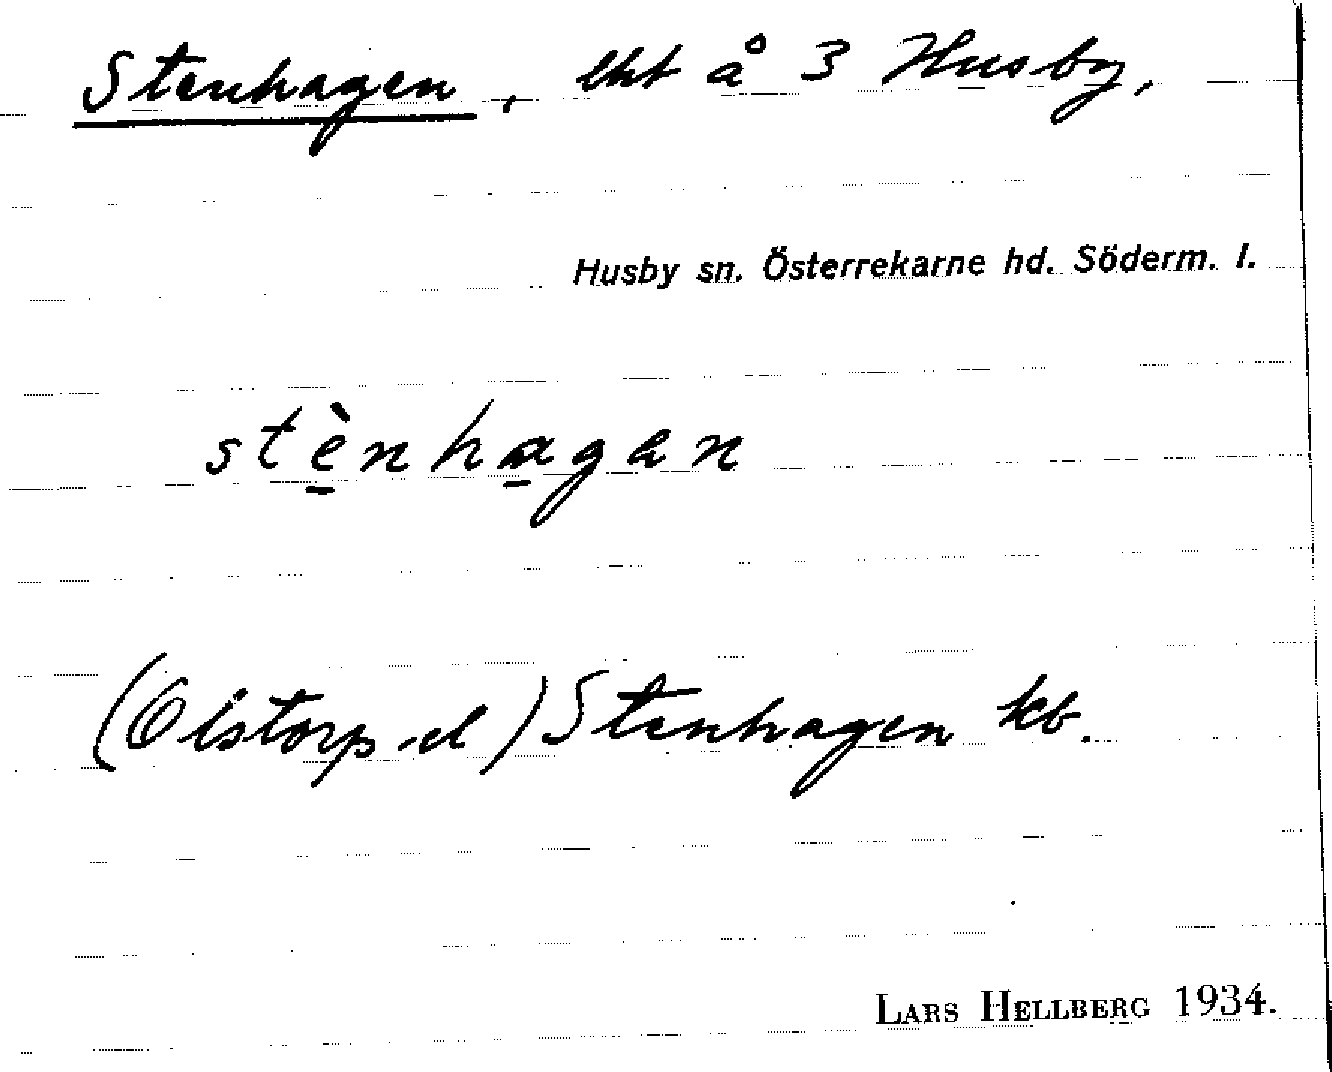 Stenhagen, lht å 3 Husby,
Husby sn. Österrekarne hd. Söderm. l.
stè̱nha̱gan
(Olstorp.el) Stenhagen kb.
LARS HELLBERG 1934.